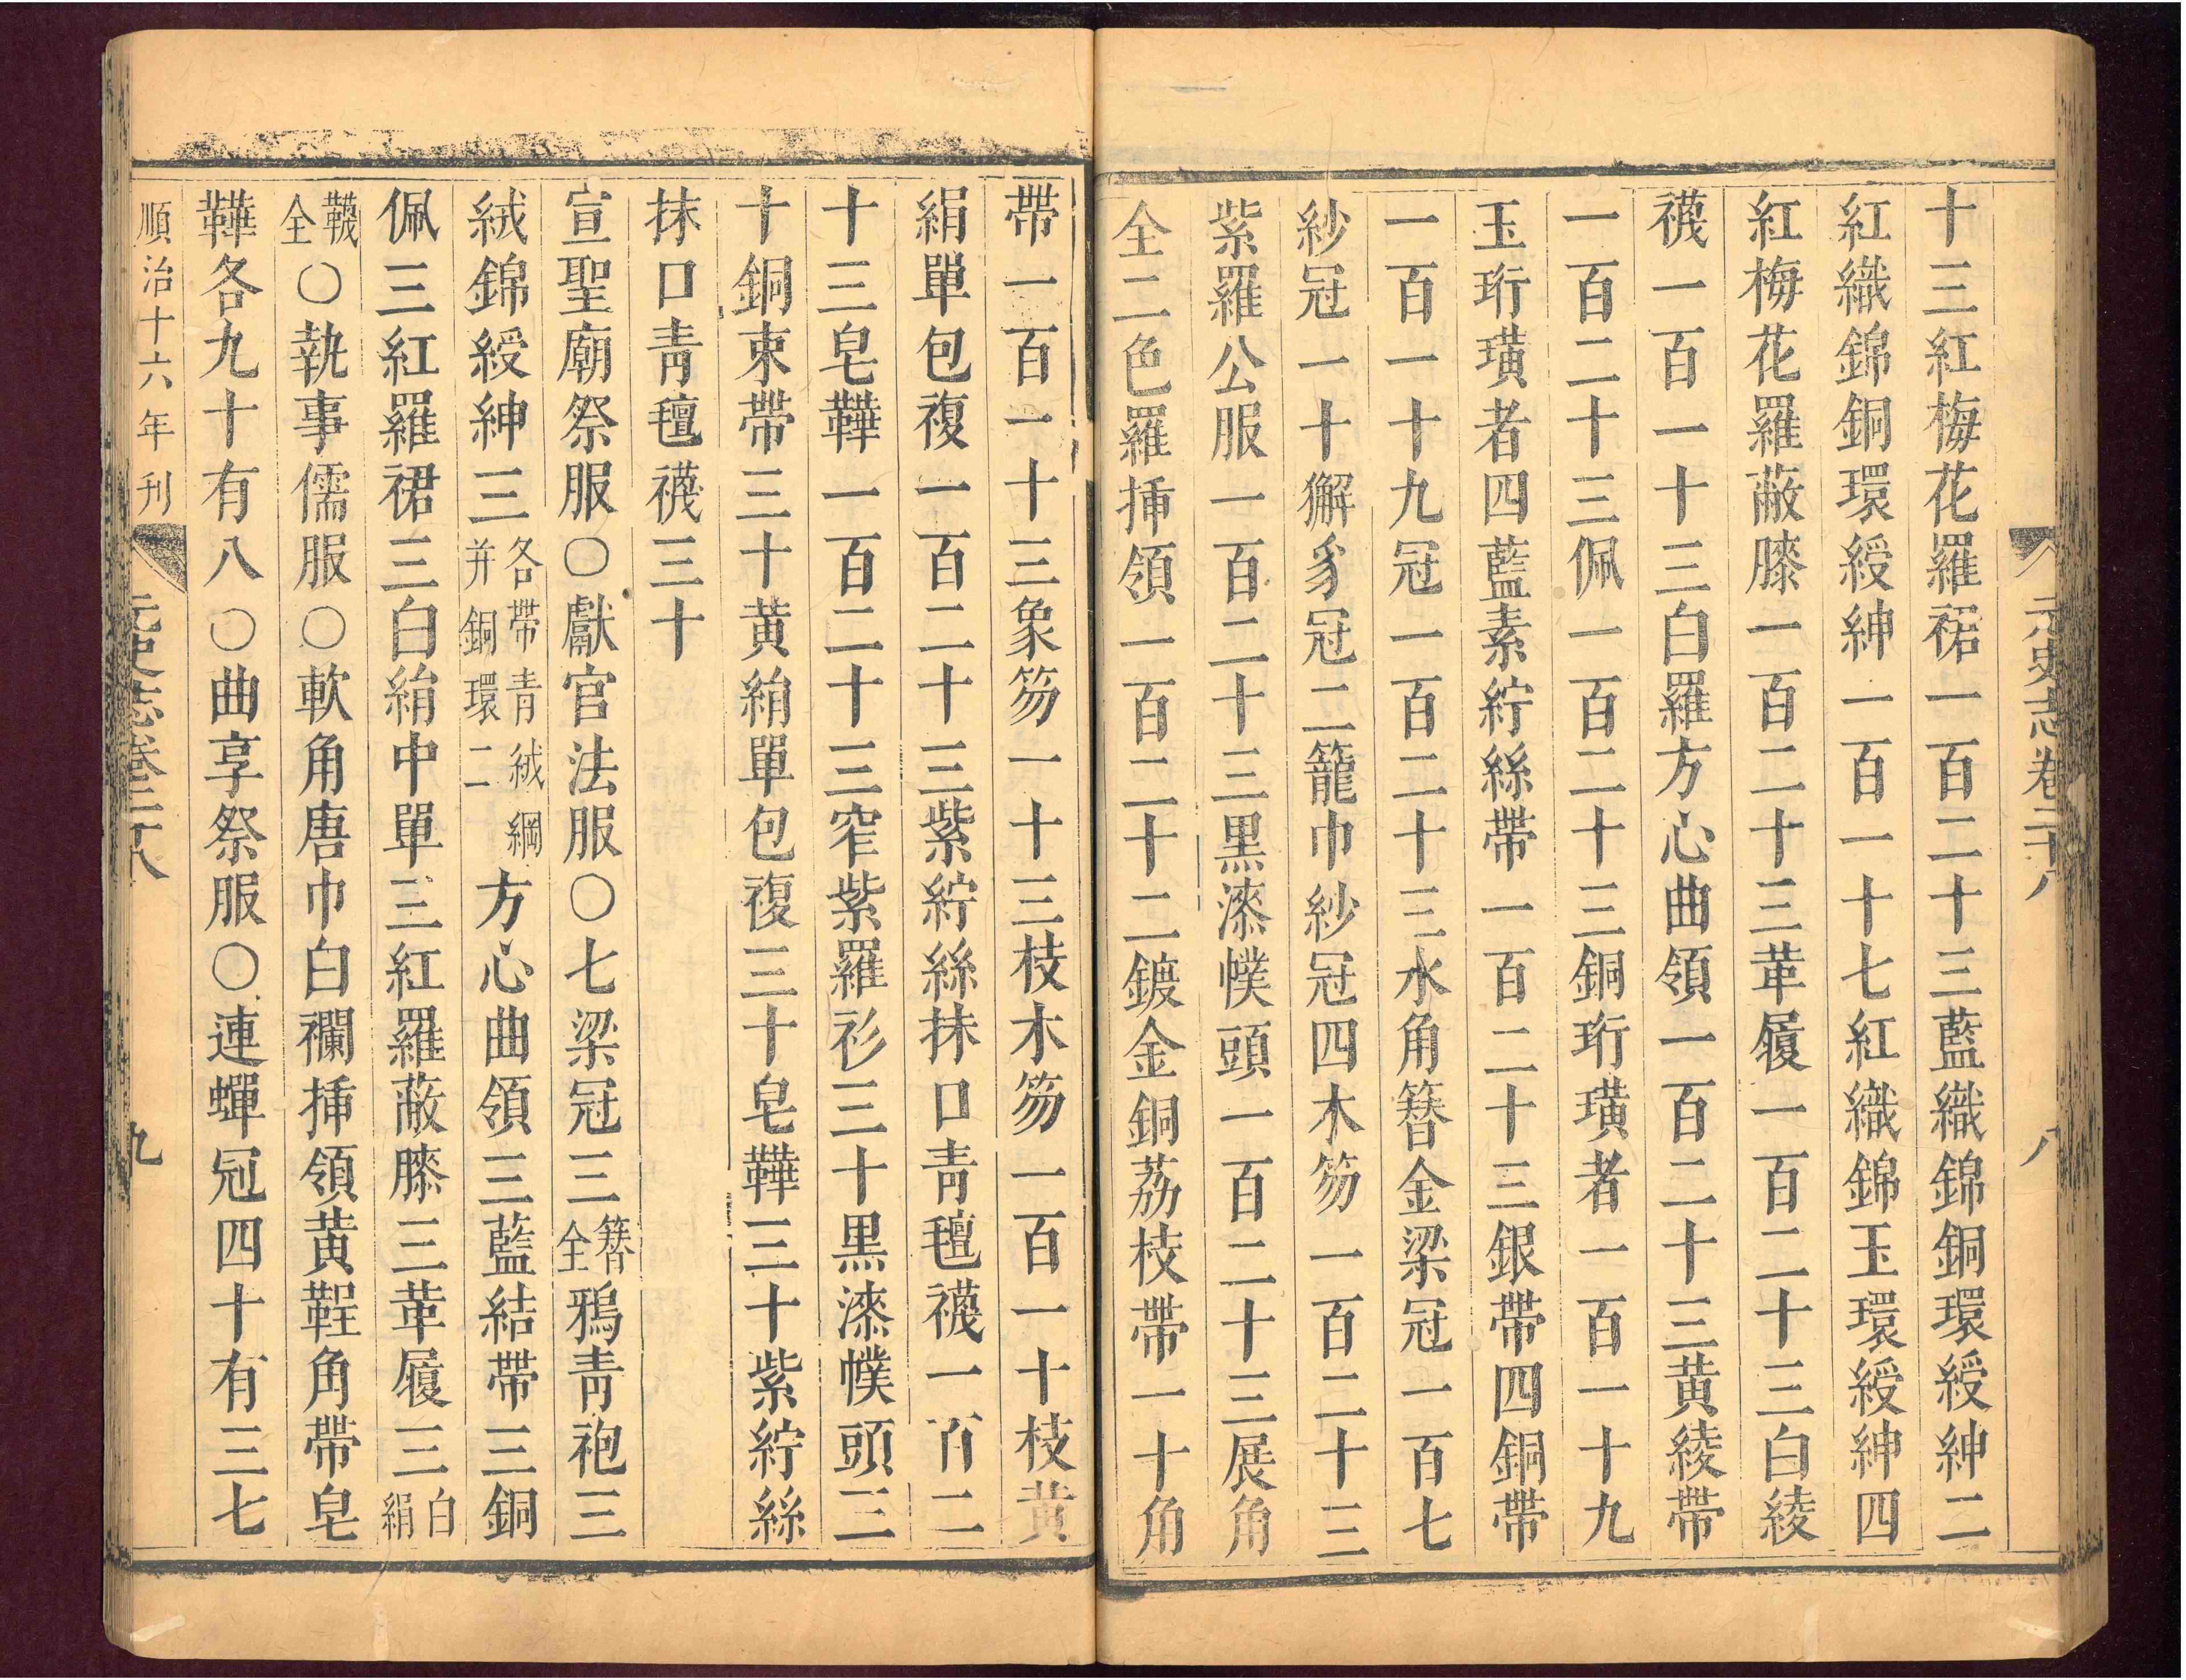 元史志卷二十八 八
十三紅梅花羅裙一百二十三藍織錦銅環綬紳二
紅織錦銅環綬紳一百一十七紅織錦玉環綬紳四
紅梅花羅蔽膝一百二十三革履一百二十三白綾
襪一百一十三白羅方心曲領一百二十三黃綾帶
一百二十三佩一百二十三銅珩璜者一百一十九
玉珩璜者四藍素紵絲帶一百二十三銀帶四銅帶
一百一十九冠一百二十三水角簪金梁冠一百七
紗冠一十獬豸冠二籠巾紗冠四木笏一百二十三
紫羅公服一百二十三黑漆幞頭一百二十三展角
全二色羅揷領一百二十二鍍金銅荔枝帶一十角
帶一百一十三象笏一十三枝木笏一百一十枝黃
絹單包複一百二十三紫紵絲抹口青氊襪一百二
十三皂鞾一百二十三窄紫羅衫三十黑漆幞頭三
十銅束帶三十黃絹單包複三十皂鞾三十紫紵絲
抹口青氊襪三十
宣聖廟祭服○獻官法服○七梁冠三簪全鴉青袍三
絨錦綬紳三各帶青絨網并銅環二方心曲領三藍結帶三銅
佩三紅羅裙三白絹中單三紅羅蔽膝三革履三白絹
韈全○執事儒服○軟角唐巾白襴揷領黃鞓角帶皂
鞾各九十有八○曲阜祭服○連蟬冠四十有三七
順治十六年刊 元史志卷二十八 九